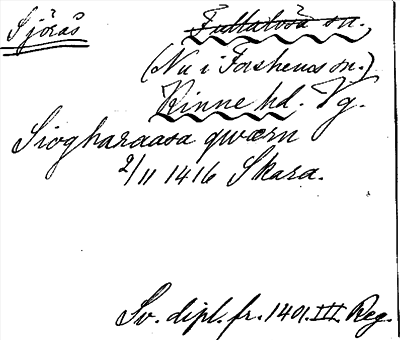 Sjörås
Fullösa sn.
(Nu i Forshems sn.)
Kinne hd. Vg.
Siogharaasa qwærn
2/11 1416 Skara.
Sv. dipl. fr. 1401. III. Reg.